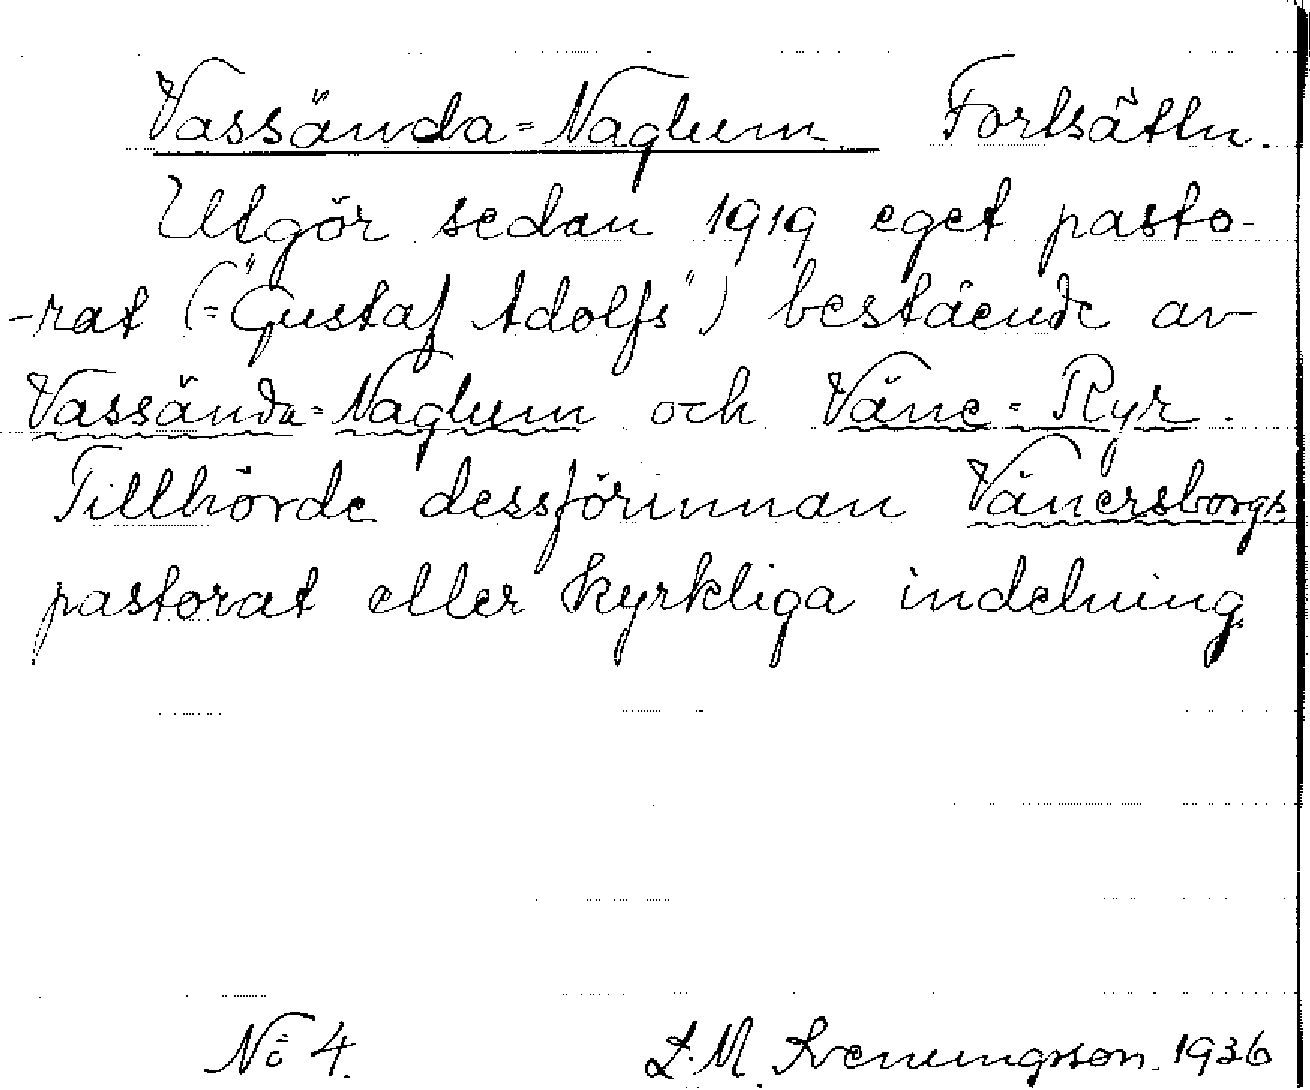 Vassända=Naglum Fortsättn.
Utgör sedan 1919 eget pasto-
-rat (="Gustaf Adolfs") bestående av
Vassända=Naglum och Väne-Ryr.
Tillhörde dessförinnan Vänersborgs
pastorat eller kyrkliga indelning.
No 4. L.M. Svenungsson. 1936